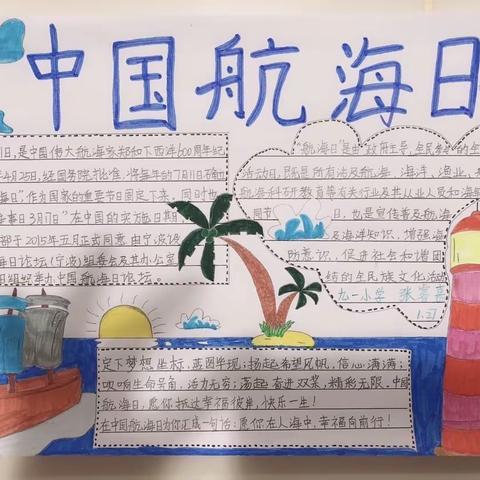 中国航海日
1日,是中国伟大航海家郑和下西洋600周年纪
年4月25日,经国务院批准,将每年的7月11日确立
海日",作为国家的重要节日固定下来,同时也
海事日3月17日"在中国的实施日期
部于2015年五月正式同意由宁波设
海日论坛(宁波)组委会及其办公室
组织好举办中国航海日论坛。
"航海日"是由政府主导、全民参与的全
活动日,既是所有涉及航海、海洋、渔业、
航海科研教育等有关行业及其从业人员和海
同节日,也是宣传普及航海
及海洋知识,增强海
防意识,促进社会和谐团
结的全民族文化活动
九一小学 张
1.27
定下梦想坐标,蓝图毕现;扬起希望风帆,信心满满;
吹响生命号角,活力无穷;荡起奋进双桨,精彩无限。中国
航海日,愿你抵达幸福彼岸,快乐一生!
在中国航海日为你汇成一句话:愿你在人海中,幸福向前行!